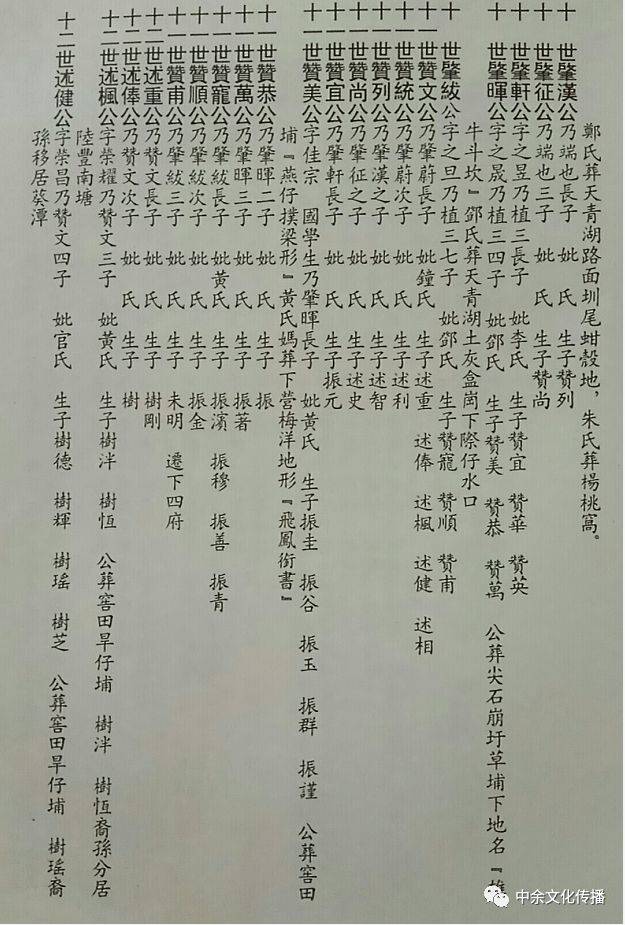 鄭氏葬天青湖路面圳尾蚶殼地，朱氏葬楊桃窩。
十　世肇漢公乃端也長子　妣　氏　生子贊列
十　世肇征公乃端也三子　妣　氏　生子贊尚
十　世肇軒公字之昱乃植三長子　妣李氏　生子贊宜　贊華　贊英
十　世肇暉公字之晟乃植三四子　妣鄧氏　生子贊美　贊恭　贊萬　公葬尖石崩圩草埔下地名『雄
牛斗坎』鄧氏葬天青湖土灰盒崗下際仔水口
十　世肇紱公字之旦乃植三七子　妣鄧氏　生子贊寵　贊順　贊甫
十一世贊文公乃肇蔚長子　妣鐘氏　生子述重　述俸　述楓　述健　述相
十一世贊統公乃肇蔚次子　妣　氏　生子述利
十一世贊列公乃肇漢之子　妣　氏　生子述智
十一世贊尚公乃肇征之子　妣　氏　生子述史
十一世贊宜公乃肇軒長子　妣　氏　生子振元
十一世贊美公字佳宗　國學生乃肇暉長子　妣黃氏　生子振圭　振谷　振玉　振群　振謹　公葬窖田
埔『燕仔撲梁形』黃氏媽葬下營梅洋地形『飛鳳銜書』
十一世贊恭公乃肇暉二子　妣　氏　生子　振
十一世贊萬公乃肇暉三子　妣　氏　生子　振著
十一世贊寵公乃肇紱長子　妣黃氏　生子　振濱　振穆　振善　振青
十一世贊順公乃肇紱次子　妣　氏　生子　振金
十一世贊甫公乃肇紱三子　妣　氏　生子　未明　遷下四府
十二世述重公乃贊文長子　妣　氏　生子　樹剛
十二世述俸公乃贊文次子　妣　氏　生子　樹
十二世述楓公字榮耀乃贊文三子　妣黃氏　生子樹泮　樹恆　公葬窖田旱仔埔　樹泮　樹恆裔孫分居
陸豐南塘
十二世述健公字榮昌乃贊文四子　妣官氏　生子樹德　樹輝　樹瑤　樹芝　公葬窖田旱仔埔　樹瑤裔
孫移居葵潭
中余文化传播